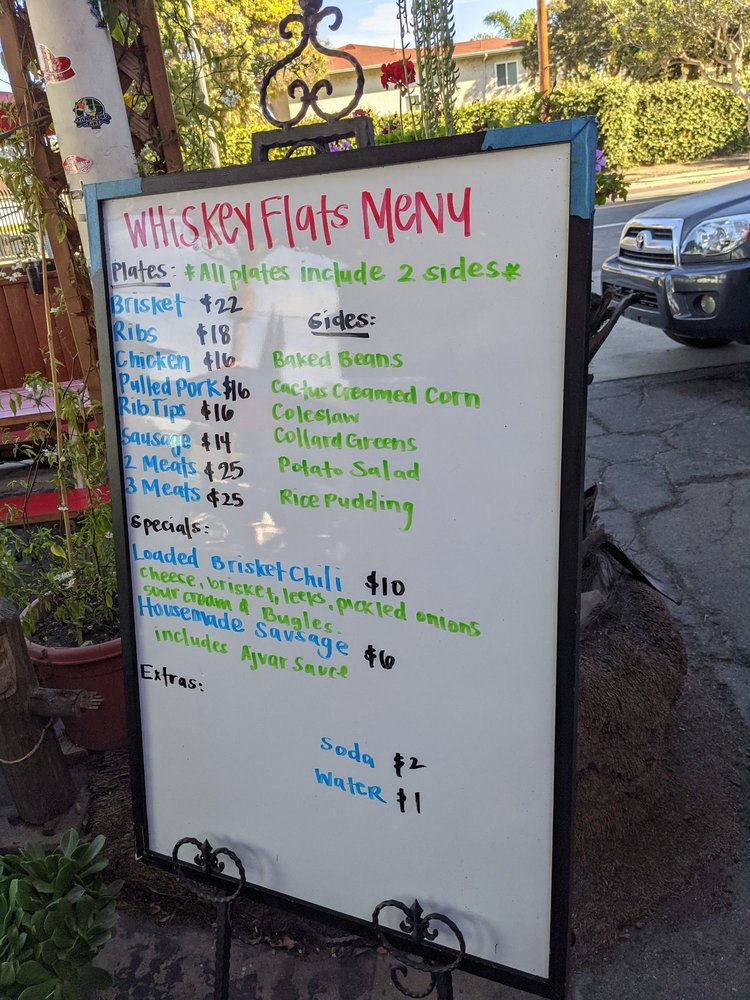 WHISKEY Flats MENU
Plates: *All plates include 2 sides*
Brisket $22
Ribs $18
Chicken $16
Pulled Pork $16
Rib Tips $16
Sausage $14
2 Meats $25
3 Meats $25
Sides:
Baked Beans
Cactus Creamed Corn
Coleslaw
Collard Greens
Potato Salad
Rice Pudding
Specials:
Loaded Brisket Chili $10
cheese, brisket, leeks, pickled onions
sour cream & Bugles.
Housemade Sausage $6
includes Ajvar Sauce
Extras:
Soda $2
Water $1